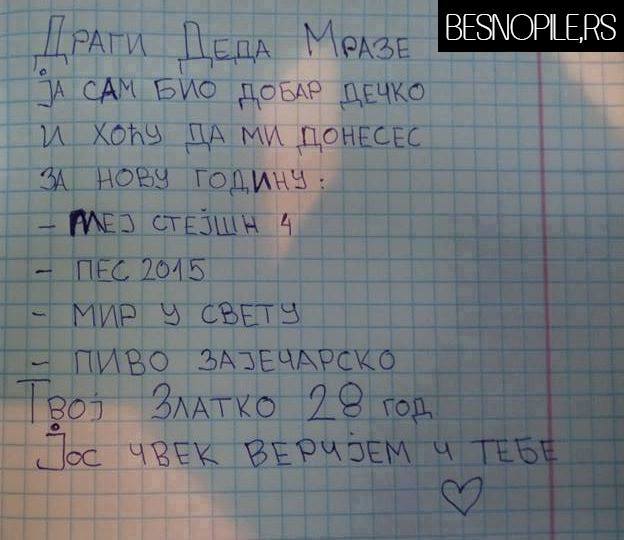 BESNOPILE,RS
Драги Деда Мразе
ја сам био добар дечко
и хоћу да ми донесес
за нову годину:
- плеј стејшн 4
- пес 2015
- мир у свету
- пиво зајечарско
Твој Златко 28 год
Јос увек верујем у тебе